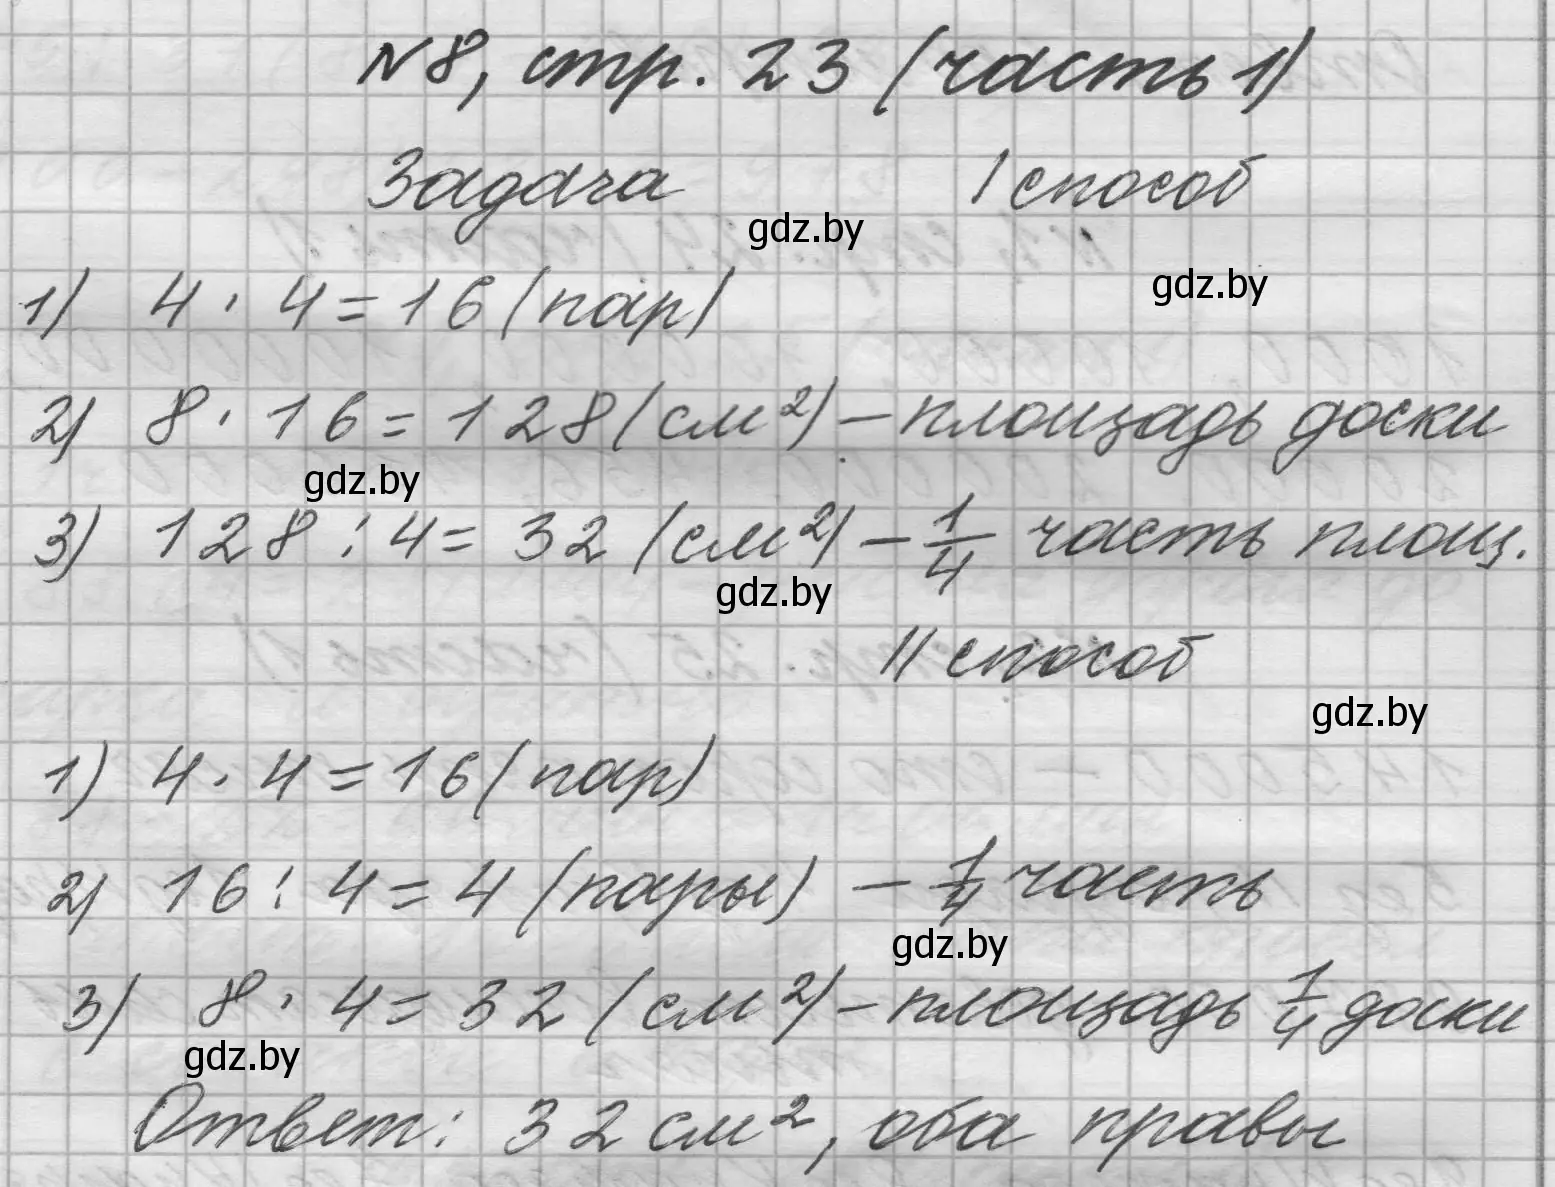 №8, стр. 23 (часть 1)
Задача I способ
gdz.by
gdz.by
1) 4 · 4 = 16 (пар)
2) 8 · 16 = 128 (см²) – площадь доски
gdz.by
3) 128 : 4 = 32 (см²) – 1/4 часть площ.
gdz.by
II способ
gdz.by
1) 4 · 4 = 16 (пар)
2) 16 : 4 = 4 (пары) – 1/4 часть
gdz.by
3) 8 · 4 = 32 (см²) – площадь 1/4 доски
gdz.by
Ответ: 32 см², оба правы